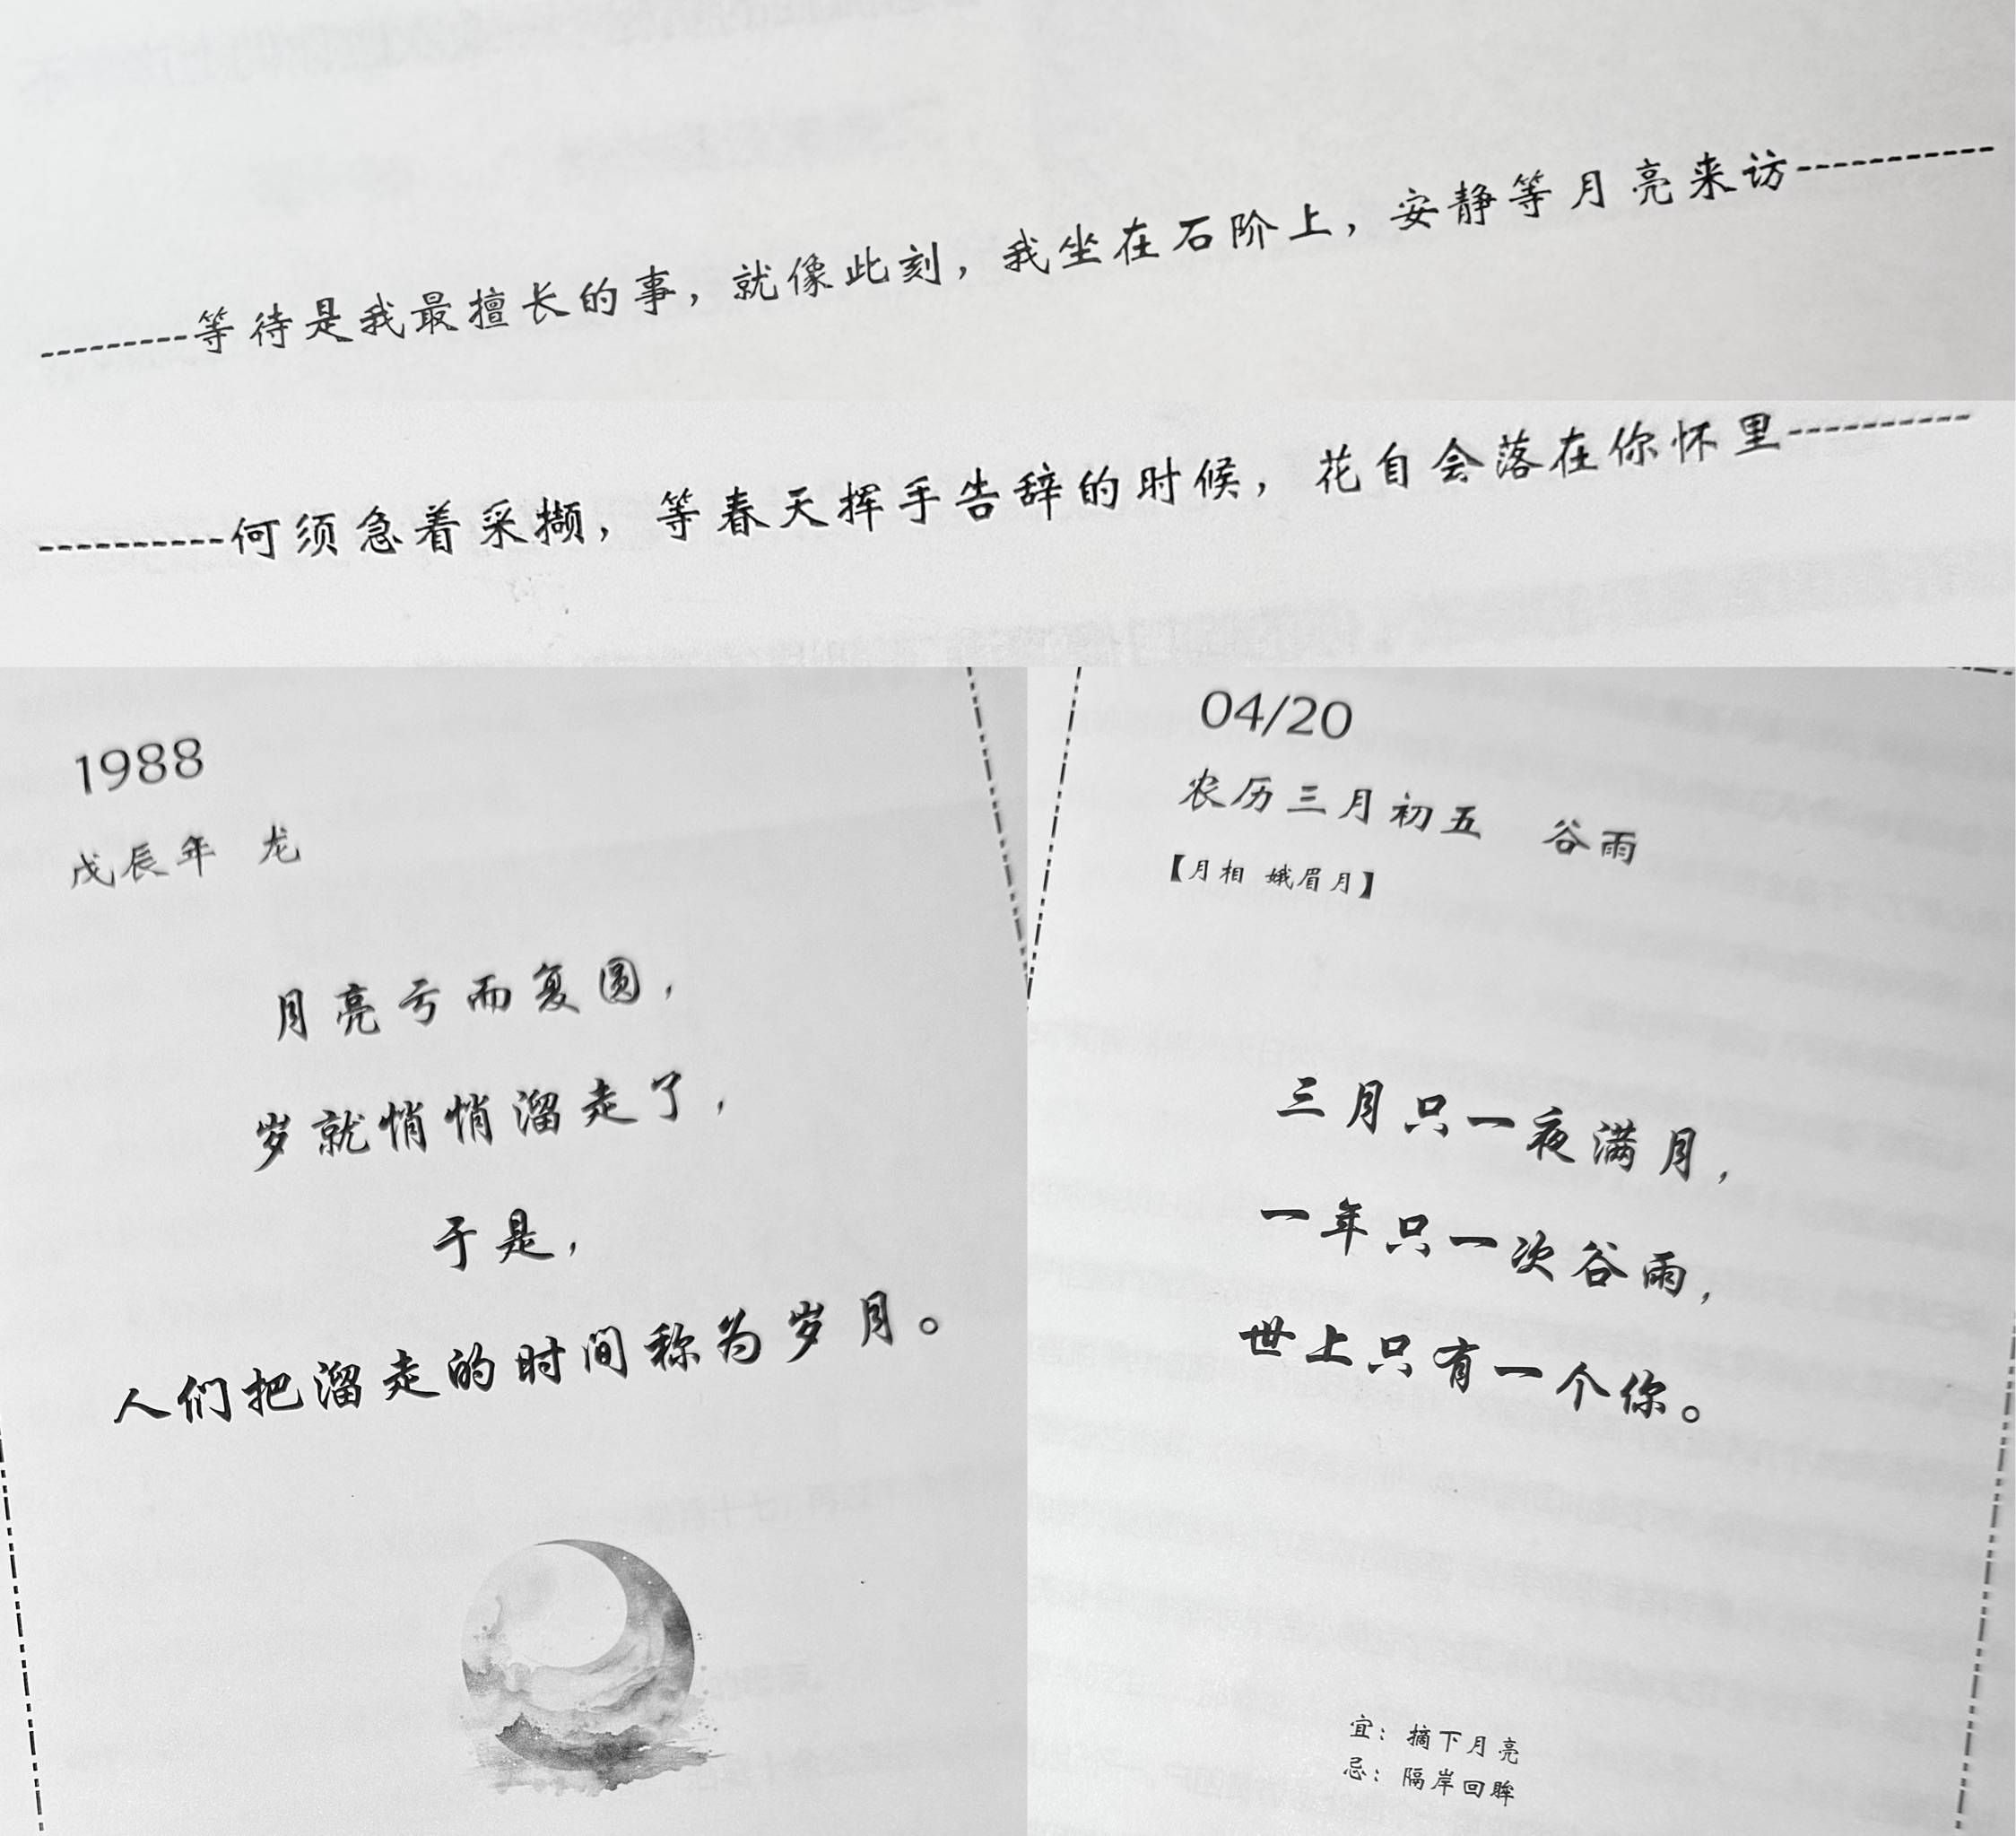 等待是我最擅长的事，就像此刻，我坐在石阶上，安静等月亮来访
何须急着采撷，等春天挥手告辞的时候，花自会落在你怀里
1988
戊辰年 龙
月亮亏而复圆，
岁就悄悄溜走了，
于是，
人们把溜走的时间称为岁月。
04/20
农历三月初五 谷雨
【月相 娥眉月】
三月只一夜满月，
一年只一次谷雨，
世上只有一个你。
宜：摘下月亮
忌：隔岸回眸